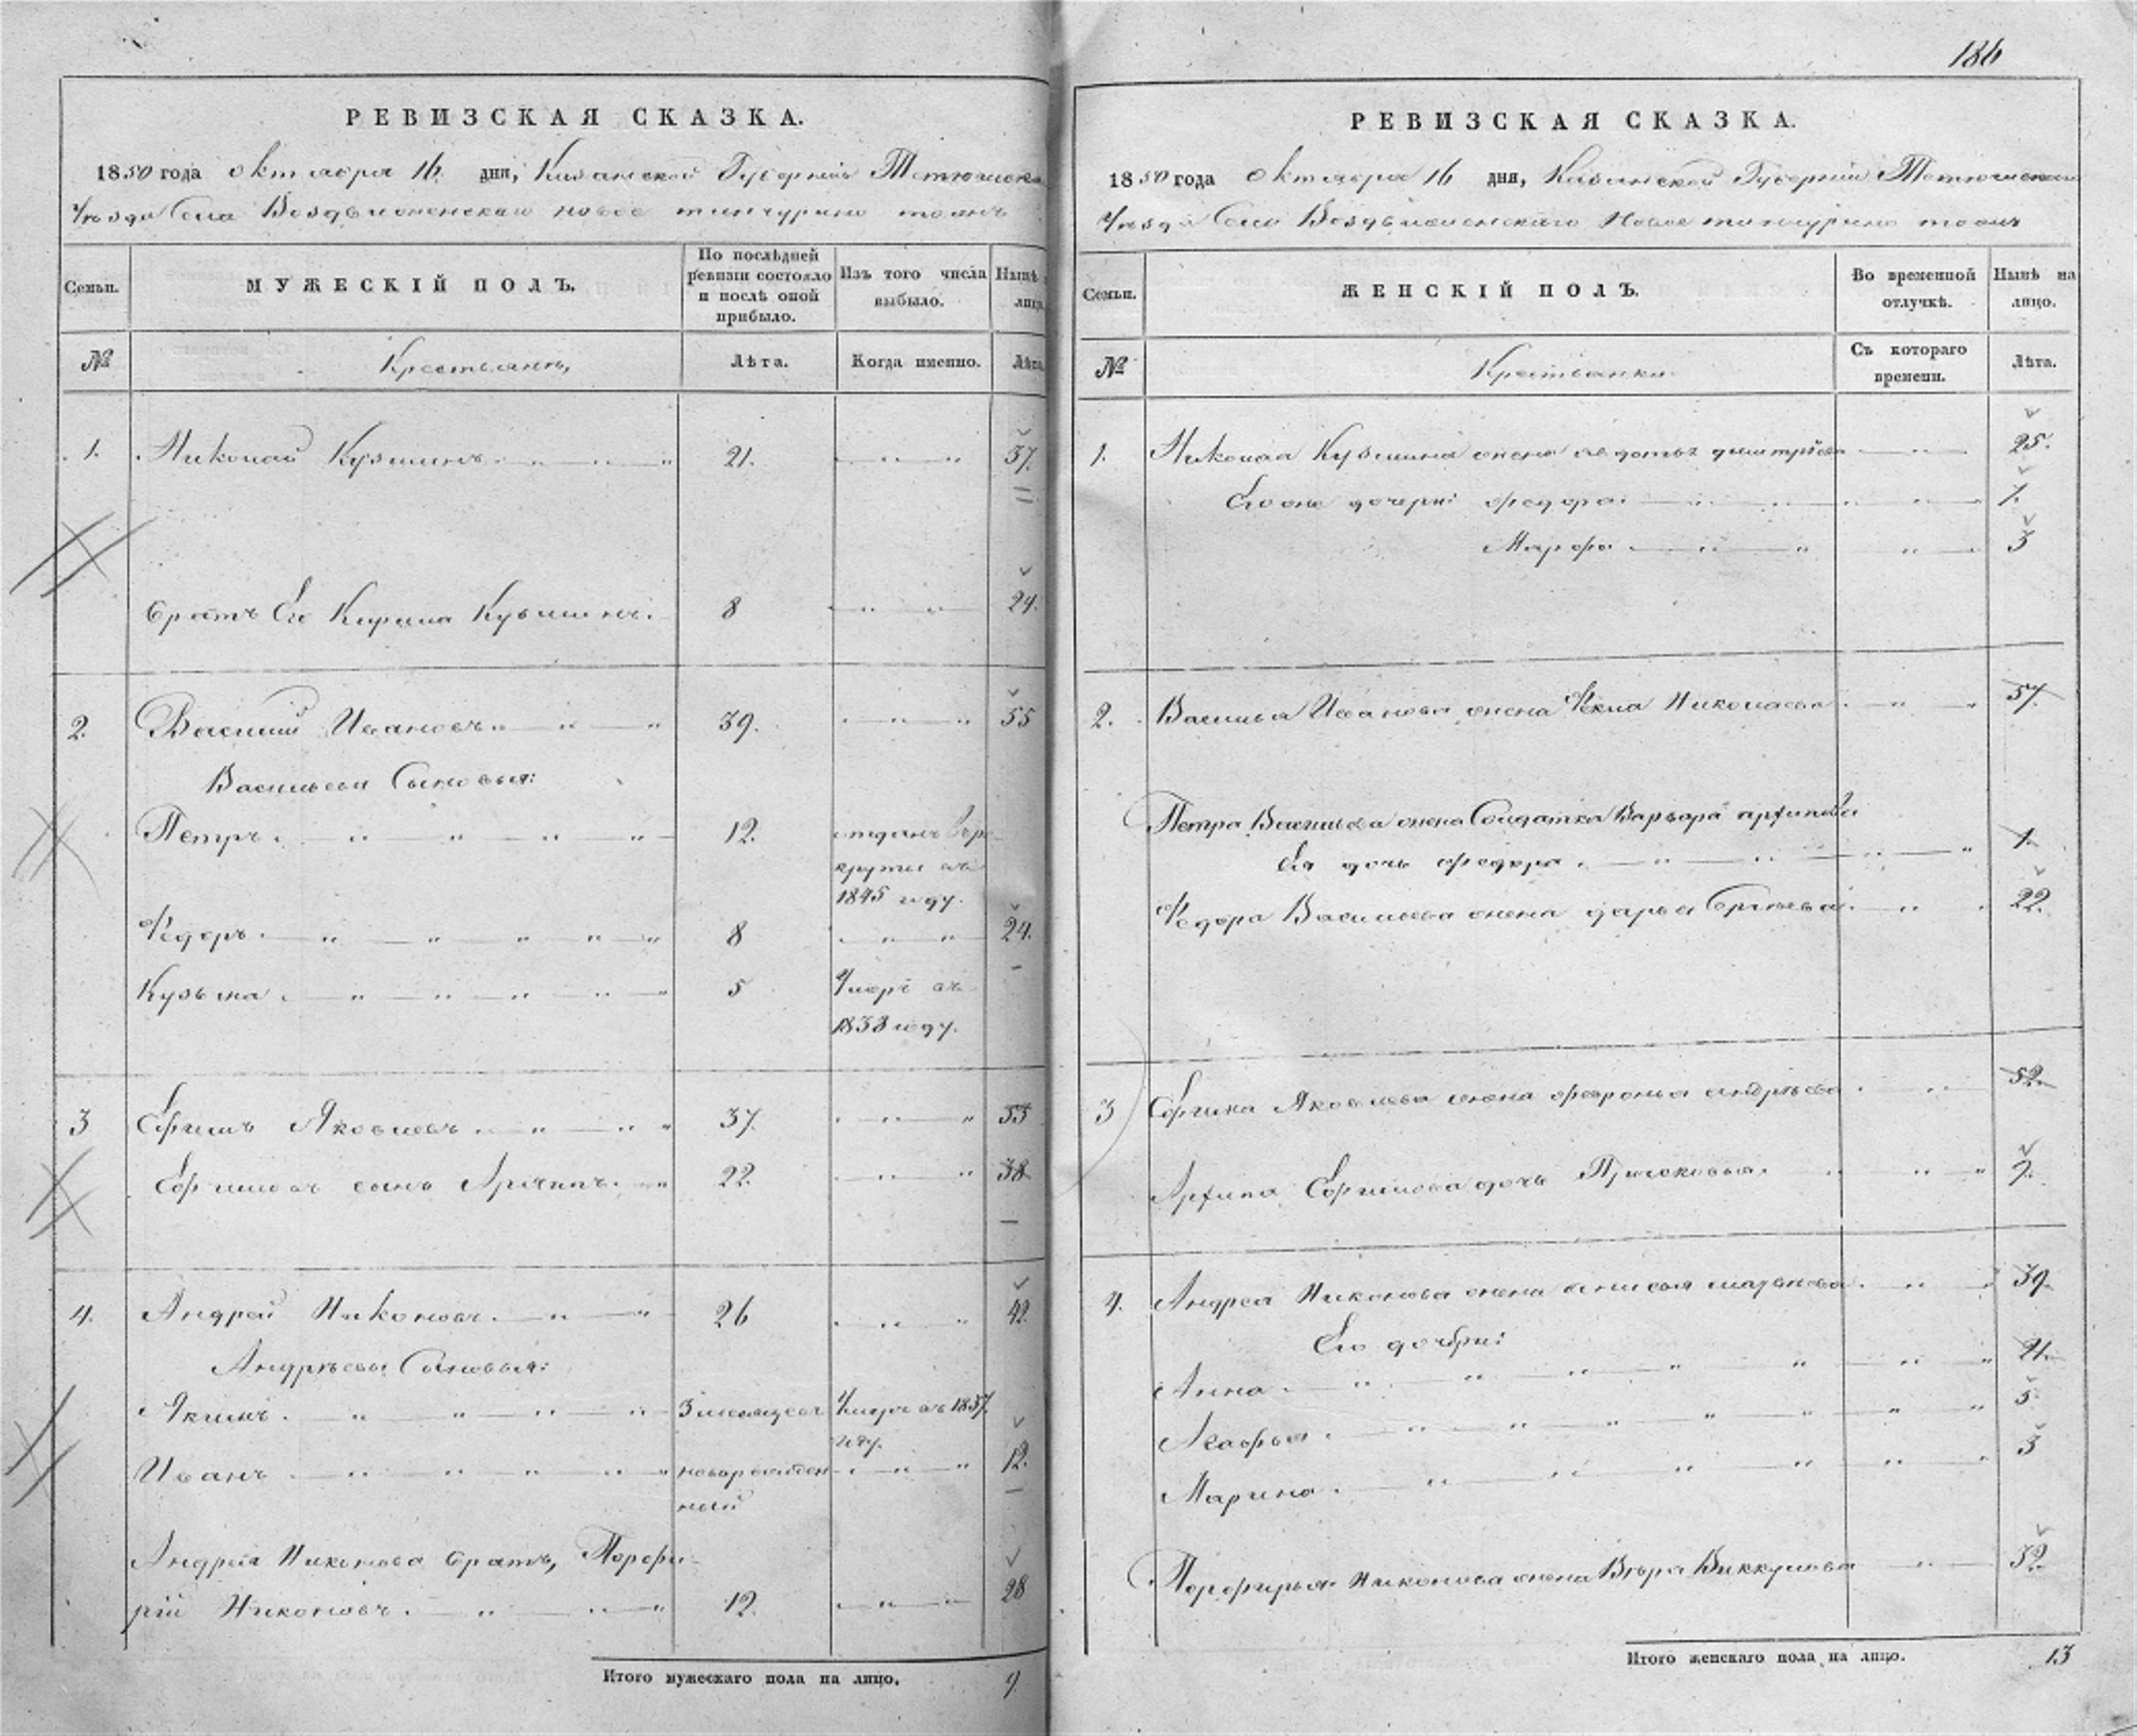 РЕВИЗСКАЯ СКАЗКА.
1850 года октября 16 дня, Казанской Губерніи Тетюшска
Уѣзда Села Воздвиженскаго новое тинчурино тожъ
Семьи.
МУЖЕСКІЙ ПОЛЪ.
По послѣдней ревизіи состояло и послѣ оной прибыло.
Изъ того числа выбыло.
Нынѣ лицо
№
Крестьянъ,
Лѣта.
Когда именно.
Лѣта.
1. Николай Кузминъ 21. 37.
братъ Его Кирила Кузминъ. 8 24.
2. Василий Ивановъ 39. 55
Васильевы Сыновья:
Петръ. 12. отданъ въ ре
круты въ
1845 году.
Федоръ. 8 24.
Кузьма. 5 Умеръ въ
1838 году.
3 Ефимъ Яковлевъ. 37. 53
Ефимовъ сынъ Архипъ. 22. 38
4. Андрей Никоновъ. 26 42.
Андрѣевы Сыновья:
Якимъ. 3 месяцевъ Умеръ въ 1837
году.
Иванъ новорожден 12.
ный
Андрея Никонова братъ, Порфи-
рій Никоновъ. 12. 28
Итого мужескаго пола на лицо. 9
186
РЕВИЗСКАЯ СКАЗКА.
1850 года Октября 16 дня, Казанской Губерніи Тетюшскаго
Уѣзда Села Воздвиженскаго Новое тинчурино тожъ
Семьи.
ЖЕНСКІЙ ПОЛЪ.
Во временной отлучкѣ.
Нынѣ на лицо.
№
Крестьянки.
Съ котораго времени.
Лѣта.
1. Николая Кузмина жена авдотья дмитріева 25.
Его же дочери: федора 7.
Марфа 3
2. Василья Иванова жена Фекла Николаева 57.
Петра Васильева жена Солдатка Варвара архипова
Ея дочь федора. 1.
Федора Васильева жена дарья Сергѣева 22.
3 Ефима Яковлева жена февронья андрѣева 52.
Архипа Ефимова дочь Прасковья. 7.
4. Андрея Никонова жена анисья матвѣева 39.
Его дочери:
Анна. 21.
Агафья. 5.
Марина. 3
Порфирья Никонова жена Вѣра Виккулова 32.
Итого женскаго пола на лицо. 13